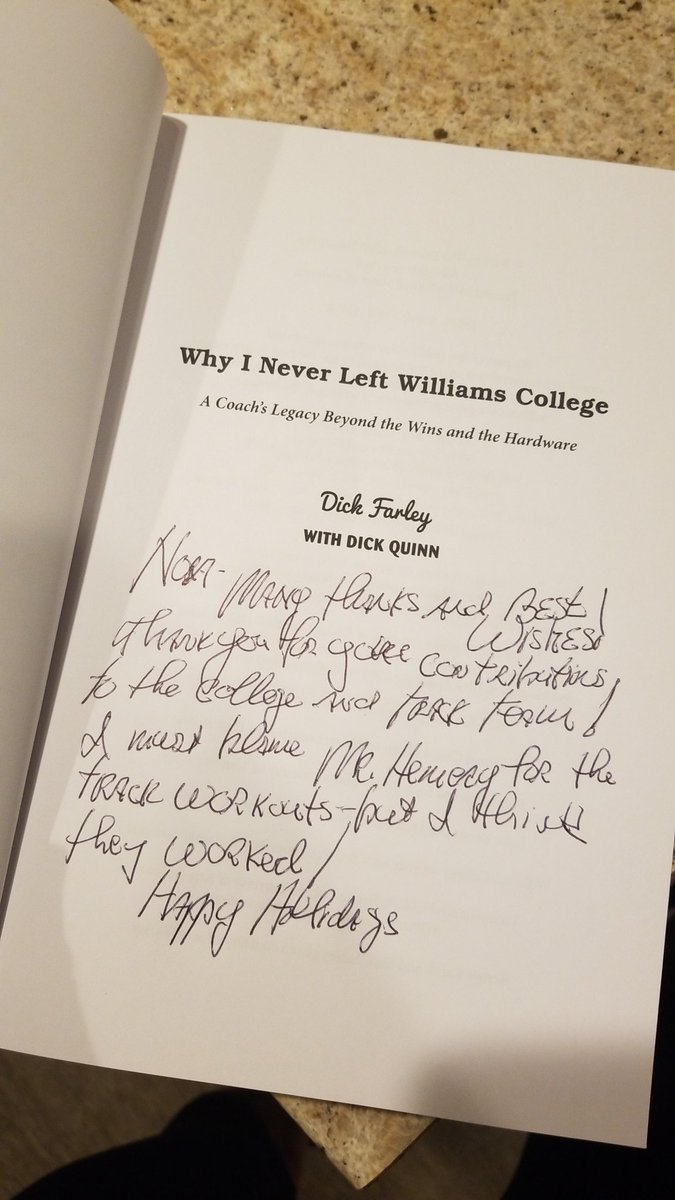 Why I Never Left Williams College
A Coach's Legacy Beyond the Wins and the Hardware
Dick Farley
WITH DICK QUINN
MANY thanks and BEST
WISHES!
thank you for your contributions
to the College and track team!
I must blame Mr. Hemery for the
TRACK WORKouts - but I think
they WORKed!
HAppy Holidays